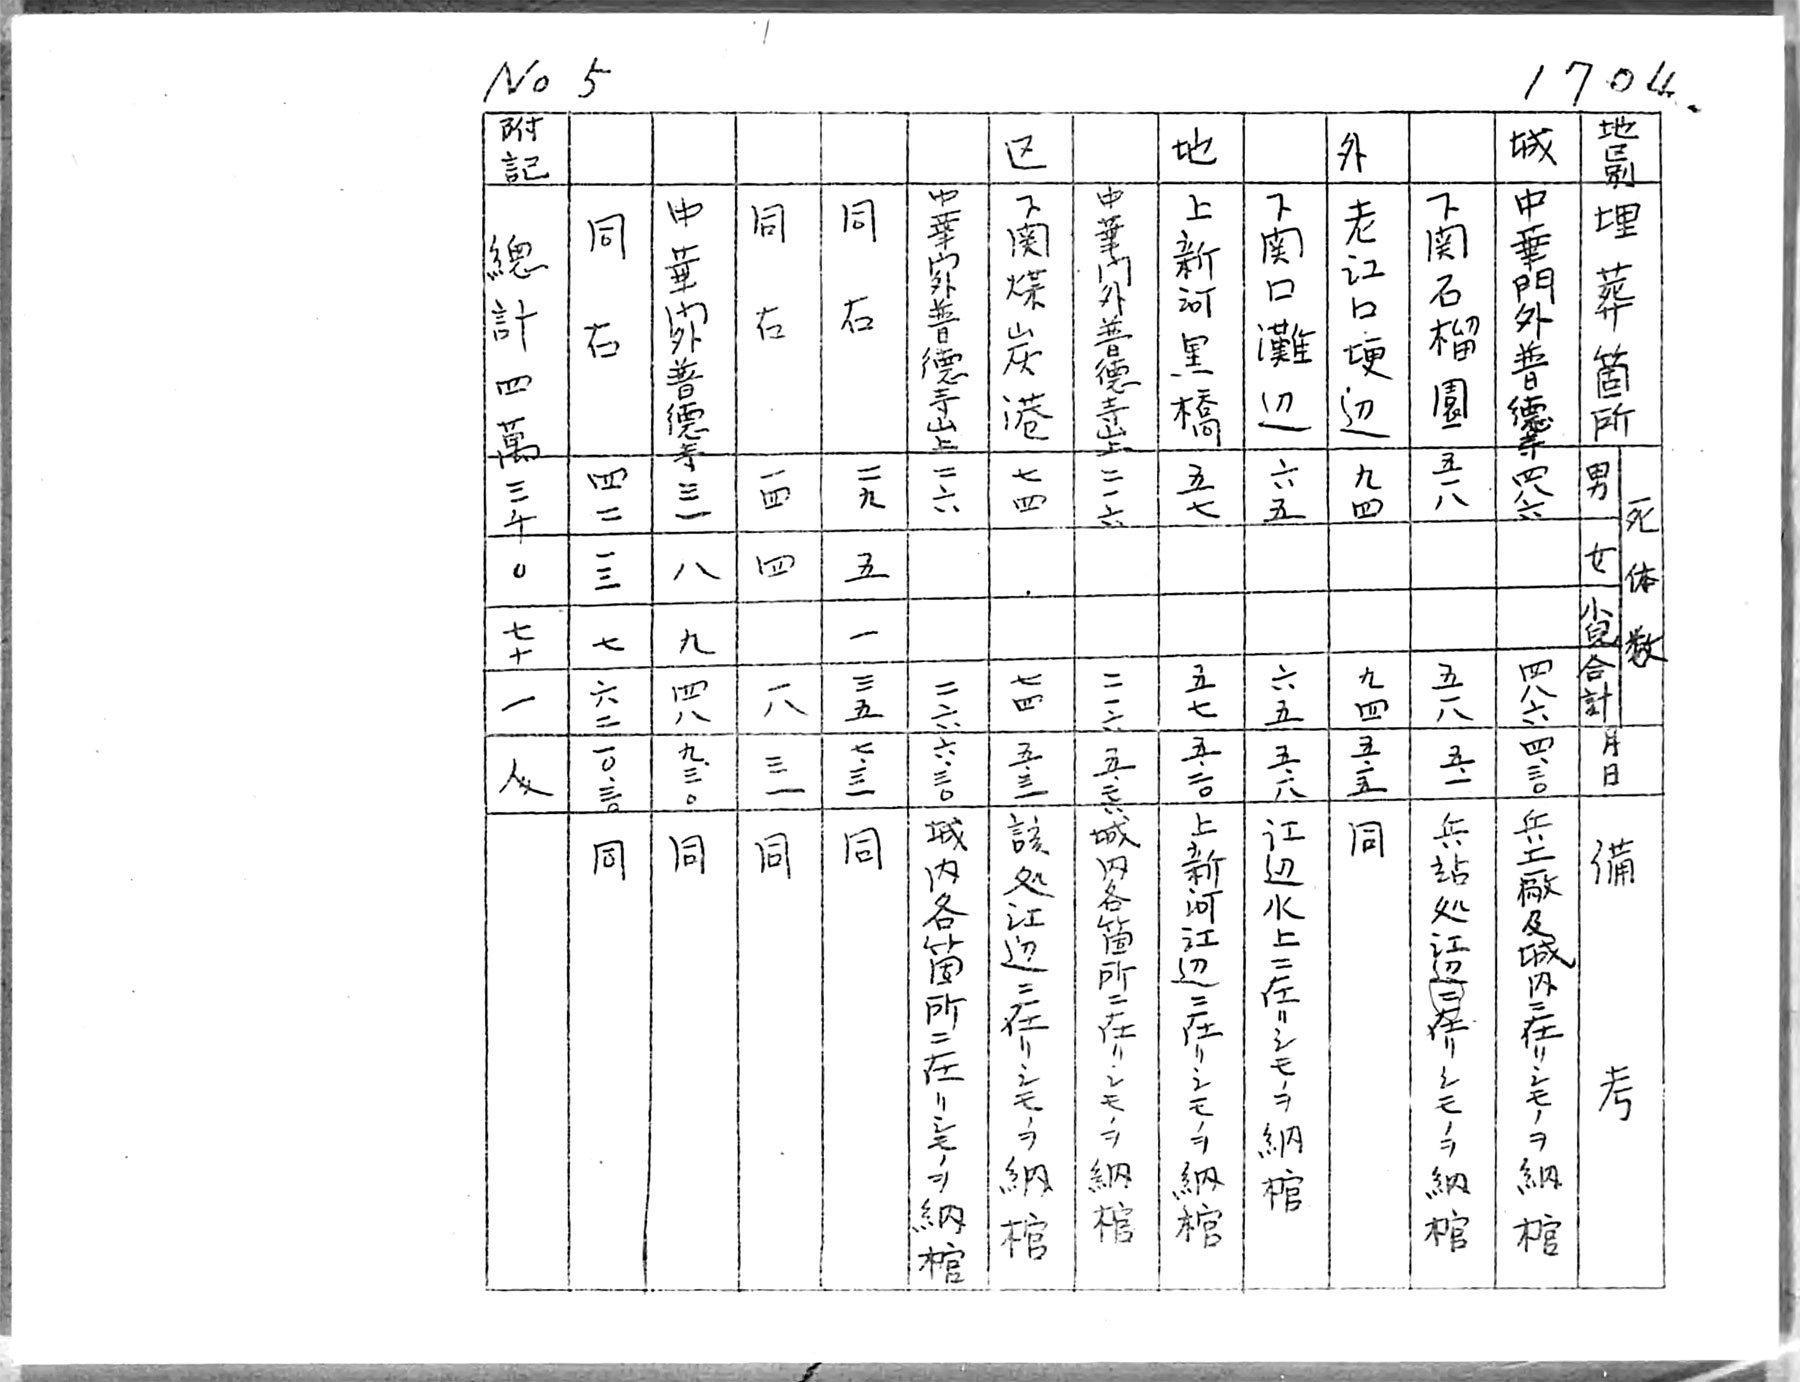 No 5
1704.
地区別 埋葬箇所 死体数 男 女 小児 合計 月日 備考
城 中華門外普徳寺 四八六 四八六 四、三〇 兵工廠及城内ニ在リシモノヲ納棺
下関石榴園 五一八 五一八 五、一 兵站処江辺ニ在リシモノヲ納棺
外 老江口埂辺 九四 九四 五、一五 同
下関口灘辺 六五 六五 五、一八 江辺水上ニ在リシモノヲ納棺
地 上新河黒橋 五七 五七 五、二〇 上新河江辺ニ在リシモノヲ納棺
中華門外普徳寺山上 二一六 二一六 五、二六 城内各箇所ニ在リシモノヲ納棺
区 下関煤炭港 七四 七四 五、三一 該処江辺ニ在リシモノヲ納棺
中華門外普徳寺山上 二六 二六 六、三〇 城内各箇所ニ在リシモノヲ納棺
同右 二九 五 一 三五 七、三一 同
同右 一四 四 一八 三一 同
中華門外普徳寺 三一 八 九 四八 九、三〇 同
同右 四二 一三 七 六二 一〇、三〇 同
附記 總計四萬三千〇七十一人